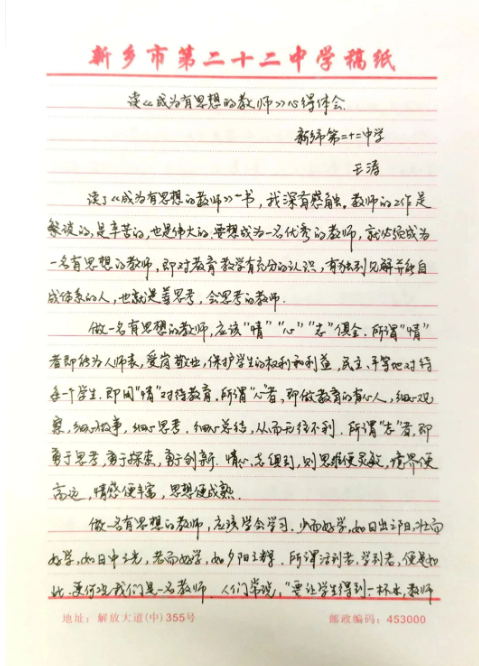 新乡市第二十二中学稿纸
读《成为有思想的教师》心得体会
新乡市第二十二中学
王涛
读了《成为有思想的教师》一书,我深有感触。教师的工作是
繁琐的,是辛苦的,也是伟大的.要想成为一名优秀的教师,就必须成为
一名有思想的教师,即对教育教学有充分的认识,有独到见解并能自
成体系的人,也就是善思考,会思考的教师.
做一名有思想的教师,应该"情""心""志"俱全.所谓"情"
者即能为人师表,爱岗敬业,保护学生的权利和利益,民主、平等地对待
每一个学生.即用"情"对待教育.所谓"心"者,即做教育的有心人,细心观
察,细心做事,细心思考,细心总结,从而无往不利.所谓"志"者,即
勇于思考,勇于探索,勇于创新.情心志俱到,则思维便灵敏,境界便
高远,情感便丰富,思想便成熟.
做一名有思想的教师,应该学会学习.少而好学,如日出之阳,壮而
好学,如日中之光,老而好学,如夕阳之辉.所谓活到老,学到老,便是如
此.更何况我们是一名教师.人们常说,"要让学生得到一杯水,教师
地址:解放大道(中)355号 邮政编码:453000